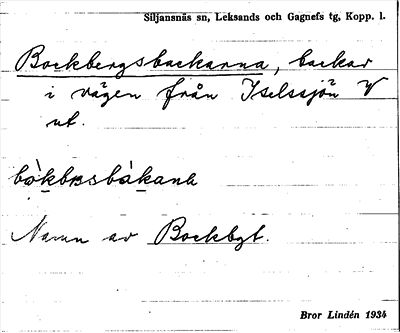 Siljansnäs sn, Leksands och Gagnefs tg, Kopp. l.
Bockbergsbackarna, backar
i vägen från Iselssjön V
ut.
Namn av Bockbgt.
Bror Lindén 1934